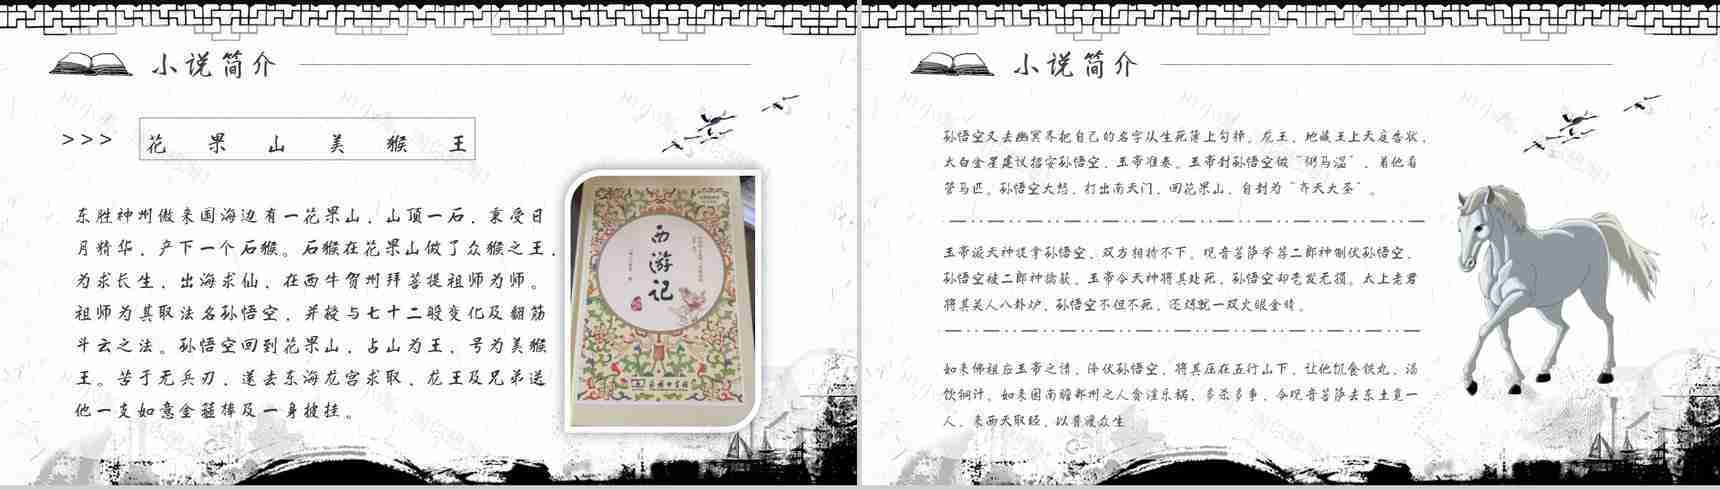 小说简介
>>> 花果山美猴王
东胜神州傲来国海边有一花果山，山顶一石，秉受日
月精华，产下一个石猴。石猴在花果山做了众猴之王，
为求长生，出海求仙，在西牛贺州拜菩提祖师为师。
祖师为其取法名孙悟空，并授与七十二般变化及翻筋
斗云之法。孙悟空回到花果山，占山为王，号为美猴
王。苦于无兵刃，遂去东海龙宫求取，龙王及兄弟送
他一支如意金箍棒及一身披挂。
西游记
小说简介
孙悟空又去幽冥界把自己的名字从生死簿上勾掉。龙王、地藏王上天庭告状，
太白金星建议招安孙悟空，玉帝准奏。玉帝封孙悟空做“弼马温”，着他看
管马匹。孙悟空大怒，打出南天门，回花果山，自封为“齐天大圣”。
玉帝派天神捉拿孙悟空，双方相持不下。观音菩萨举荐二郎神制伏孙悟空，
孙悟空被二郎神擒获，玉帝令天神将其处死，孙悟空却毫发无损。太上老君
将其关入八卦炉，孙悟空不但不死，还练就一双火眼金睛。
如来佛祖应玉帝之请，降伏孙悟空，将其压在五行山下，让他饥食铁丸，渴
饮铜汁。如来因南瞻部州之人贪淫乐祸，多杀多争，令观音菩萨去东土觅一
人，来西天取经，以普渡众生